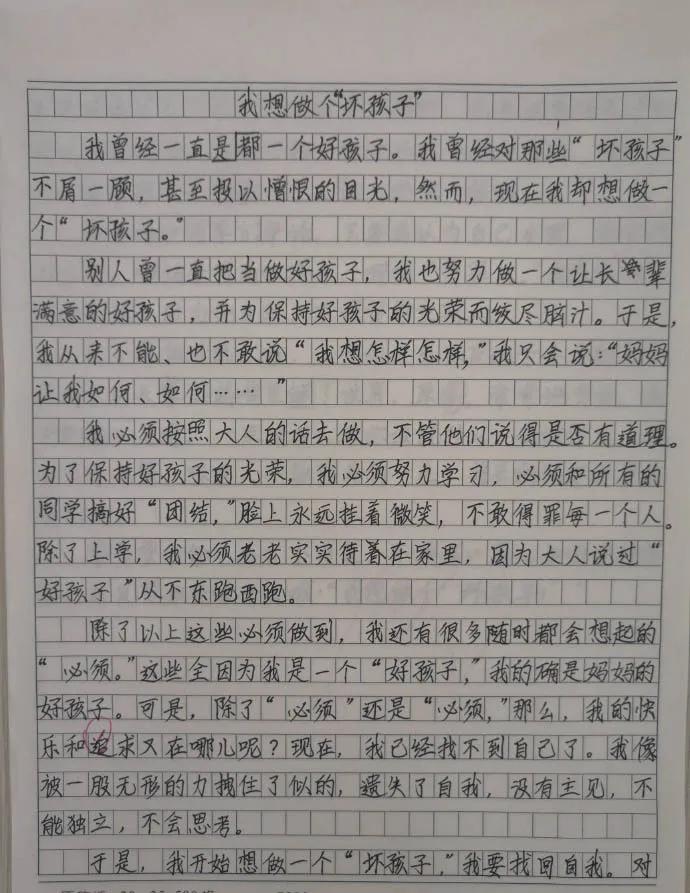 我想做个“坏孩子”
我曾经一直是都一个好孩子。我曾经对那些“坏孩子”
不屑一顾，甚至投以憎恨的目光，然而，现在我却想做一
个“坏孩子。”
别人曾一直把当做好孩子，我也努力做一个让长辈
满意的好孩子，并为保持好孩子的光荣而绞尽脑汁。于是，
我从来不能、也不敢说“我想怎样怎样，”我只会说：“妈妈
让我如何、如何……”
我必须按照大人的话去做，不管他们说得是否有道理。
为了保持好孩子的光荣，我必须努力学习，必须和所有的
同学搞好“团结，”脸上永远挂着微笑，不敢得罪每一个人。
除了上学，我必须老老实实待着在家里，因为大人说过“
好孩子”从不东跑西跑。
除了以上这些必须做到，我还有很多随时都会想起的
“必须。”这些全因为我是一个“好孩子，”我的确是妈妈的
好孩子。可是，除了“必须”还是“必须，”那么，我的快
乐和追求又在哪儿呢？现在，我已经找不到自己了。我像
被一股无形的力拽住了似的，遗失了自我，没有主见，不
能独立，不会思考。
于是，我开始想做一个“坏孩子，”我要找回自我。对